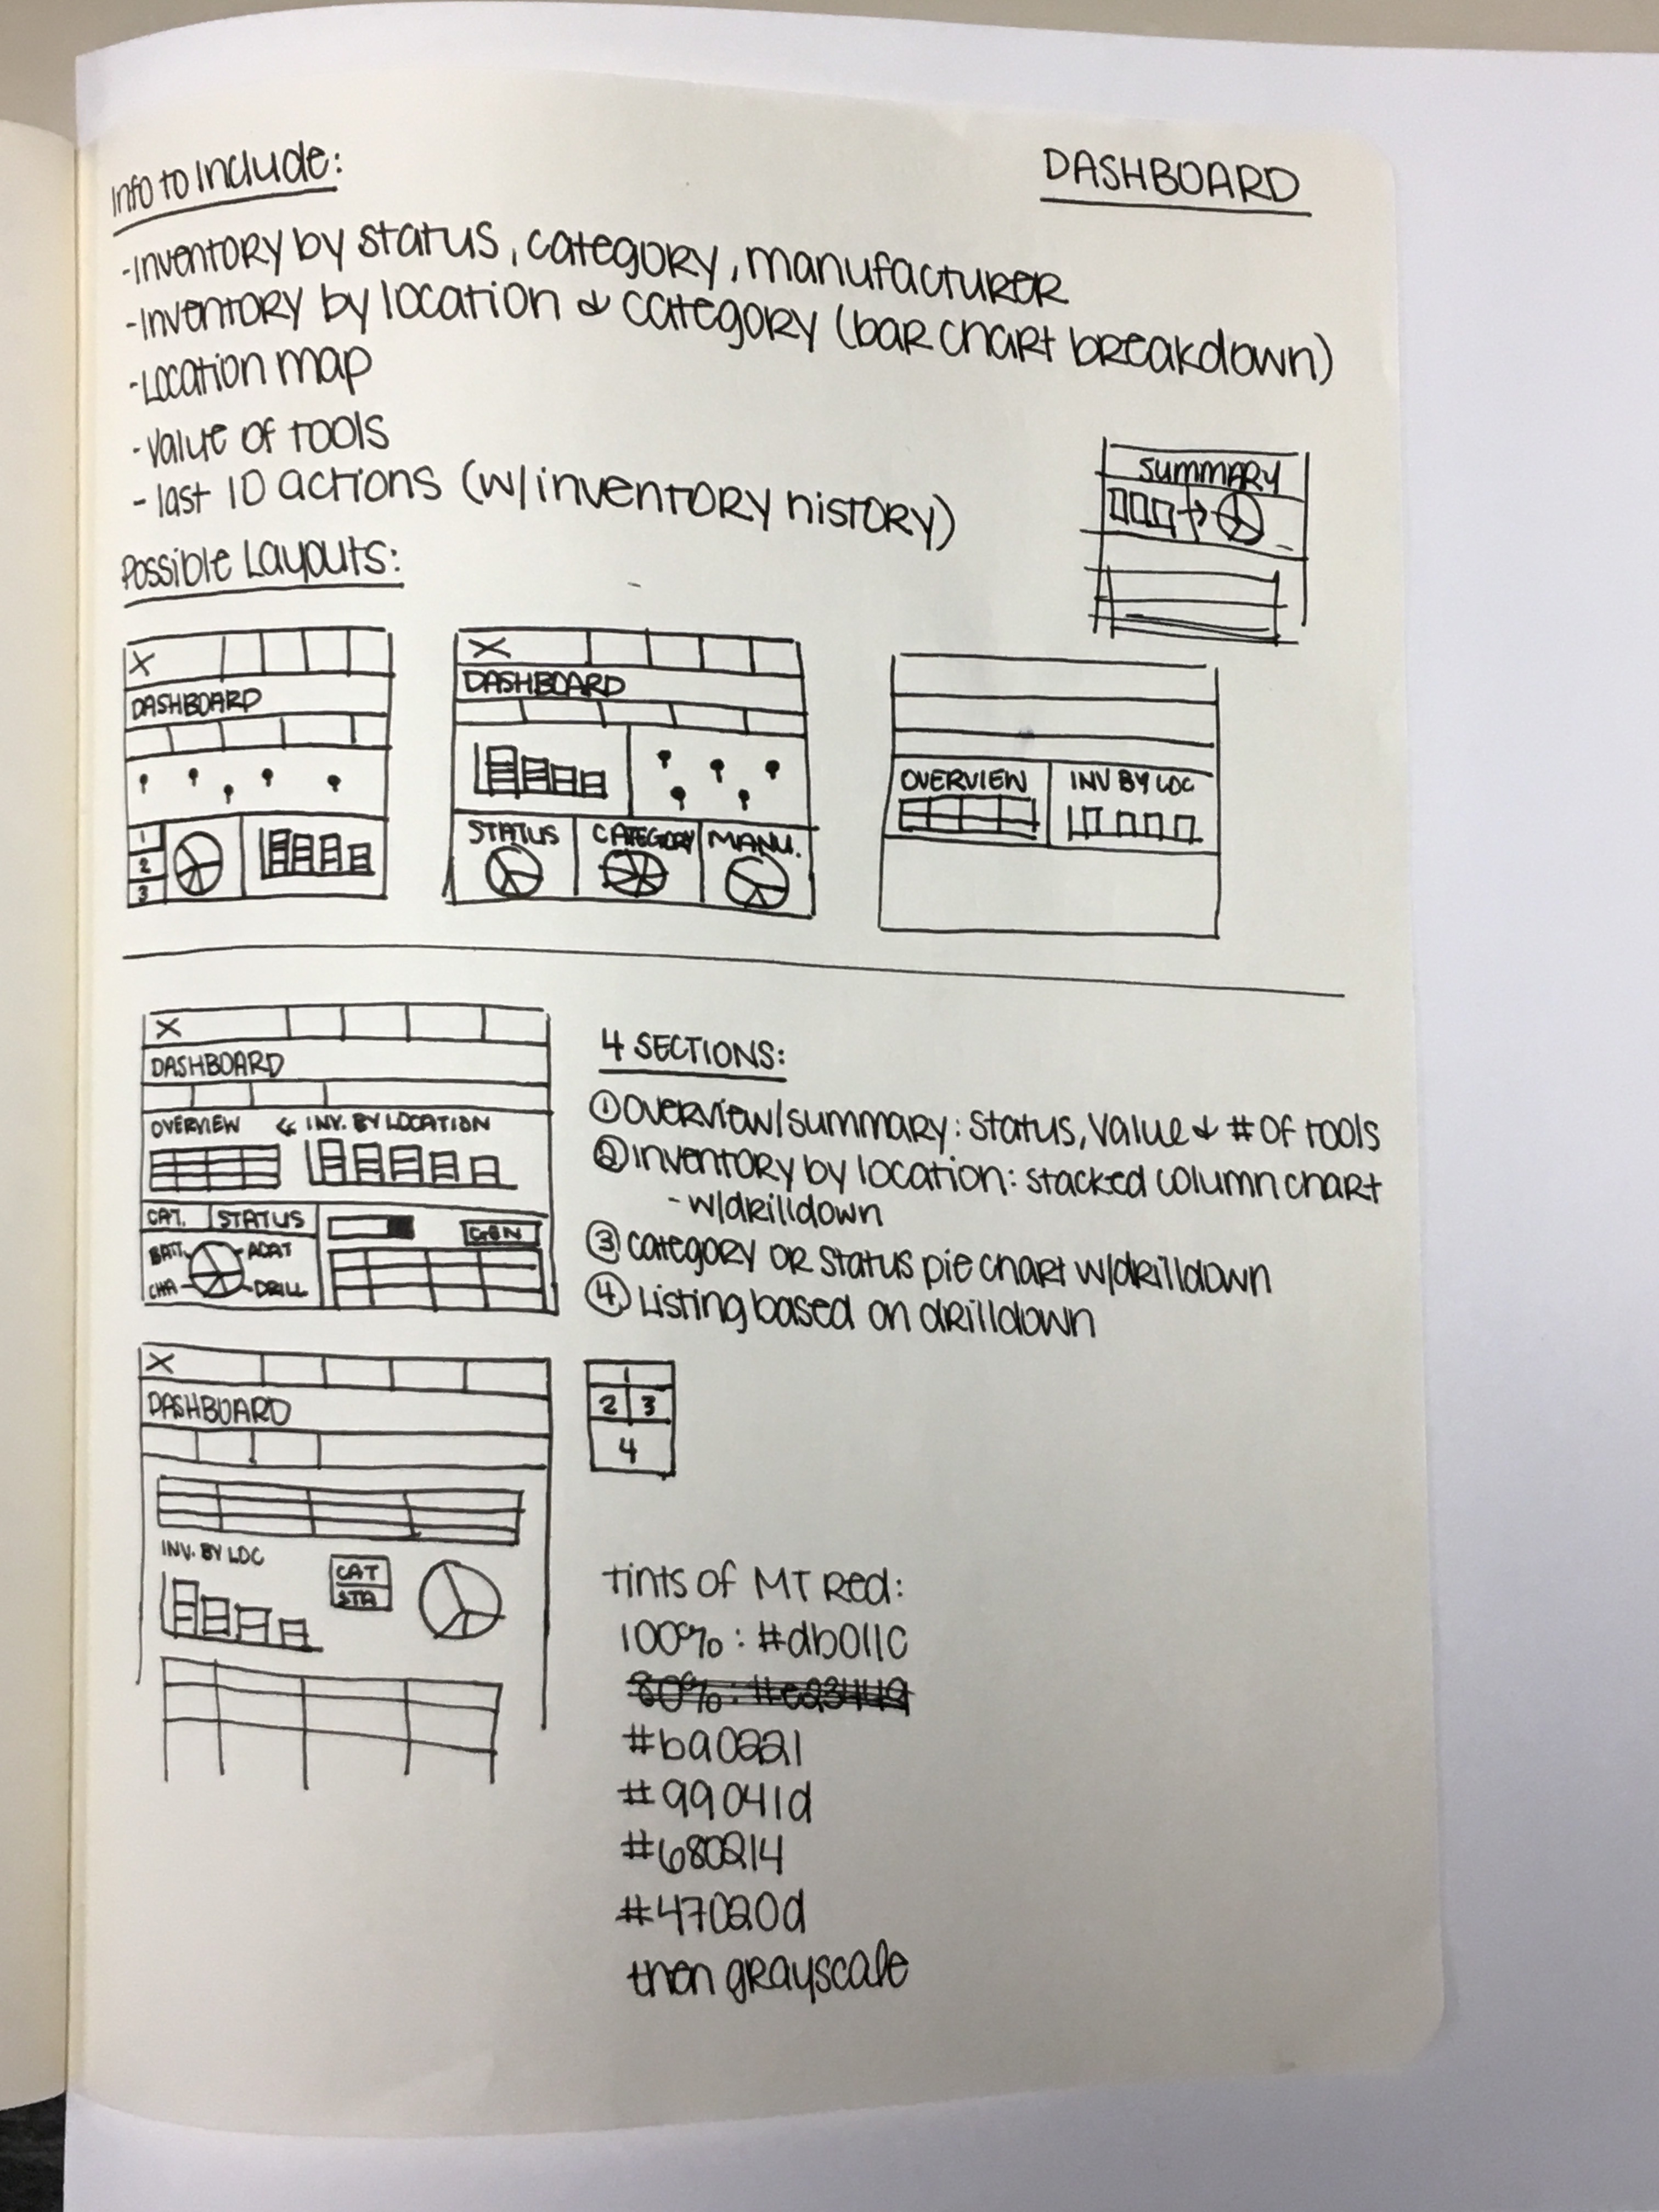 Info to Include:
DASHBOARD
-Inventory by status, category, manufacturer
-Inventory by location & category (bar chart breakdown)
-Location map
-Value of tools
- last 10 actions (w/ inventory history)
SUMMARY
Possible Layouts:
X
DASHBOARD
1
2
3
X
DASHBOARD
STATUS
CATEGORY
MANU.
OVERVIEW
INV BY LOC
X
DASHBOARD
OVERVIEW
INV. BY LOCATION
CAT.
STATUS
BATT.
ADAT
CHA
DRILL
4 SECTIONS:
① Overview/summary: Status, Value & # of tools
② Inventory by location: stacked column chart
- w/drilldown
③ category or status pie chart w/drilldown
④ Listing based on drilldown
X
DASHBOARD
INV. BY LOC
CAT
STA
1
2 3
4
tints of MT Red:
100% : #db011c
#ba0221
#99041d
#680214
#47020d
then grayscale